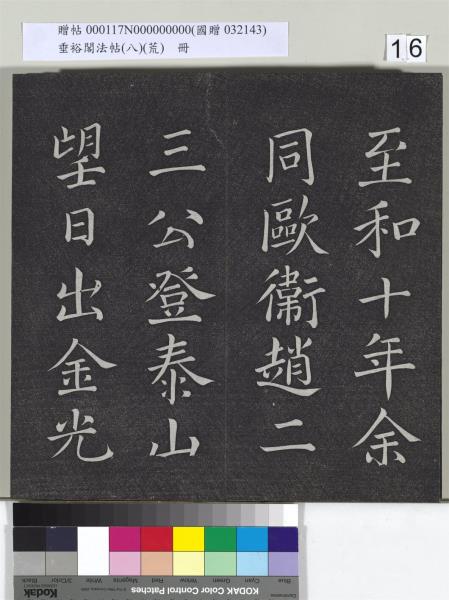 贈帖 000117N000000000(國贈 032143)
垂裕閣法帖(八)(荒) 冊
16
至和十年余
同歐衛趙二
三公登泰山
望日出金光
Blue
Cyan
Green
Yellow
Red
Magenta
White
3/Color
Black
KODAK Color Control Patches
Kodak